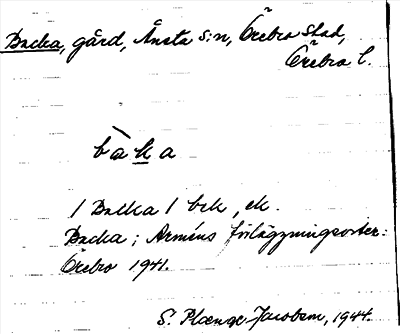 Backa, gård, Ånsta s:n, Örebro stad,
Örebro l.
bàka
/ Backa / bek, ek.
Backa; Arméns förläggningsorter:
Örebro 1941.
S. Plænge Jacobson, 1944.